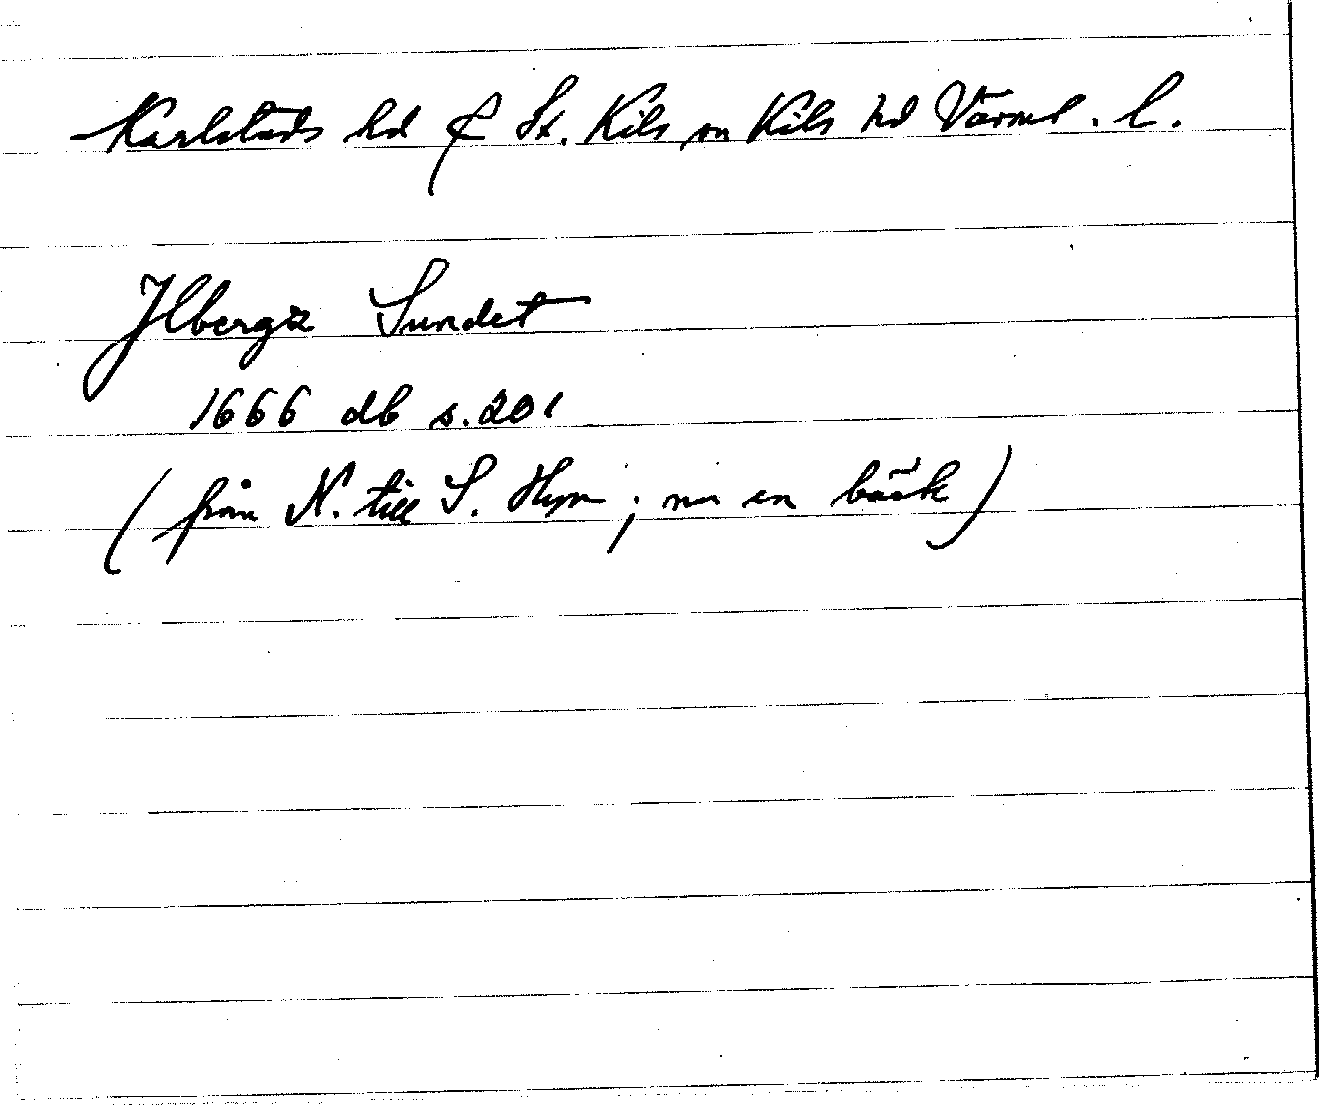 Karlstads hd & St. Kils sn Kils hd Värml. l.
Ilbergz Sundet
1666 db s. 201
(från N. till S. Hyn; nu en bäck)